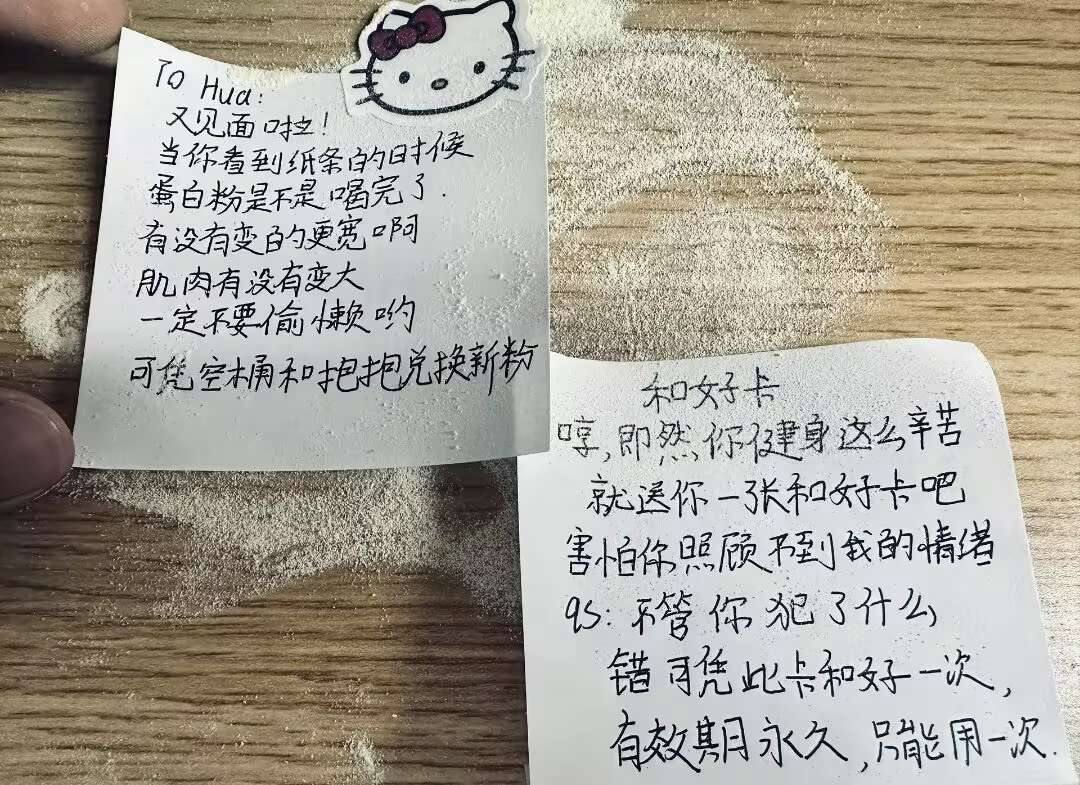 To Hua:
又见面啦!
当你看到纸条的时候
蛋白粉是不是喝完了.
有没有变的更宽啊
肌肉有没有变大
一定不要偷懒哟
可凭空桶和抱抱兑换新粉
和好卡
哼,即然你健身这么辛苦
就送你一张和好卡吧
害怕你照顾不到我的情绪
qs: 不管你犯了什么
错可凭此卡和好一次,
有效期永久,只能用一次.